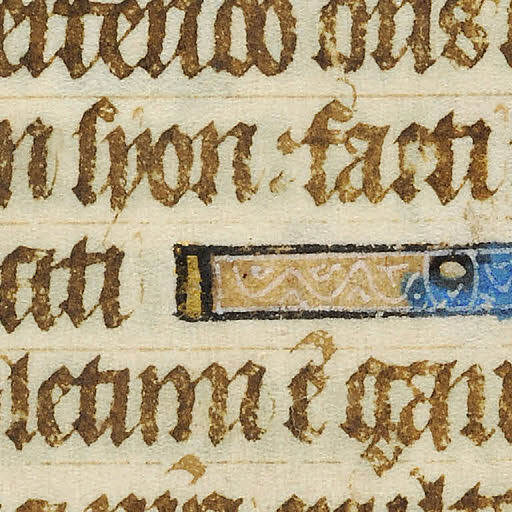 ertendo dns
n syon : facti
ati
letum ē gau